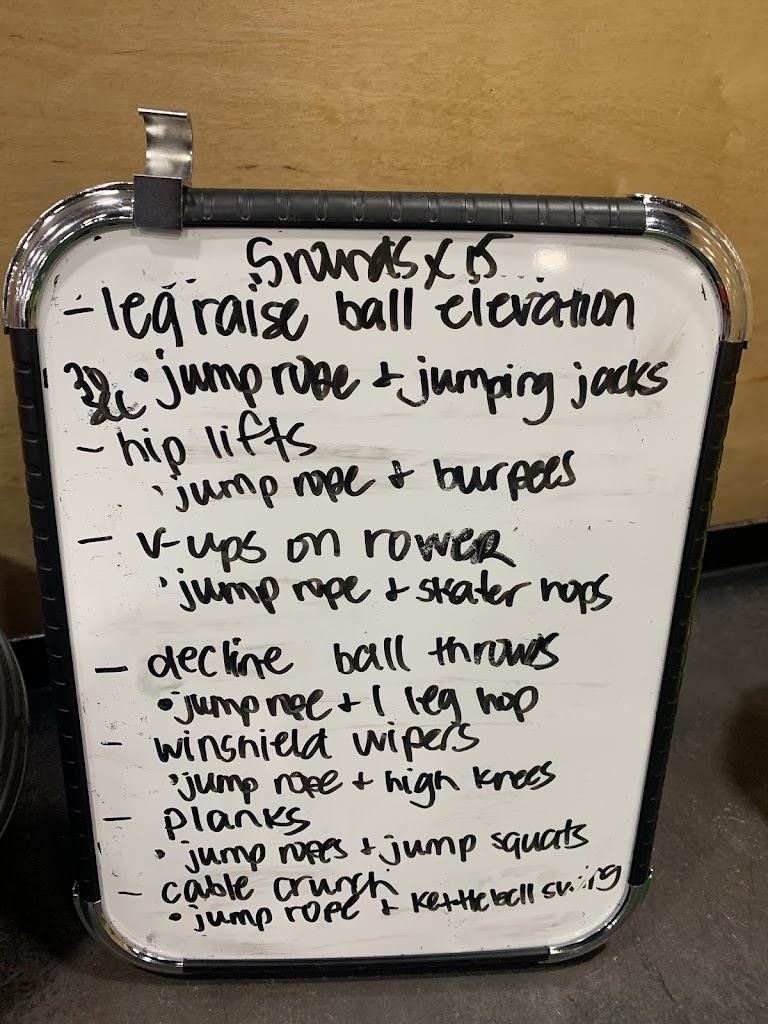 5 rounds x 15
- leg raise ball elevation
30 sec • jump rope + jumping jacks
- hip lifts
• jump rope + burpees
- v-ups on rower
• jump rope + skater hops
- decline ball throws
• jump rope + 1 leg hop
- winshield wipers
• jump rope + high knees
- planks
• jump ropes + jump squats
- cable crunch
• jump rope + kettlebell swing